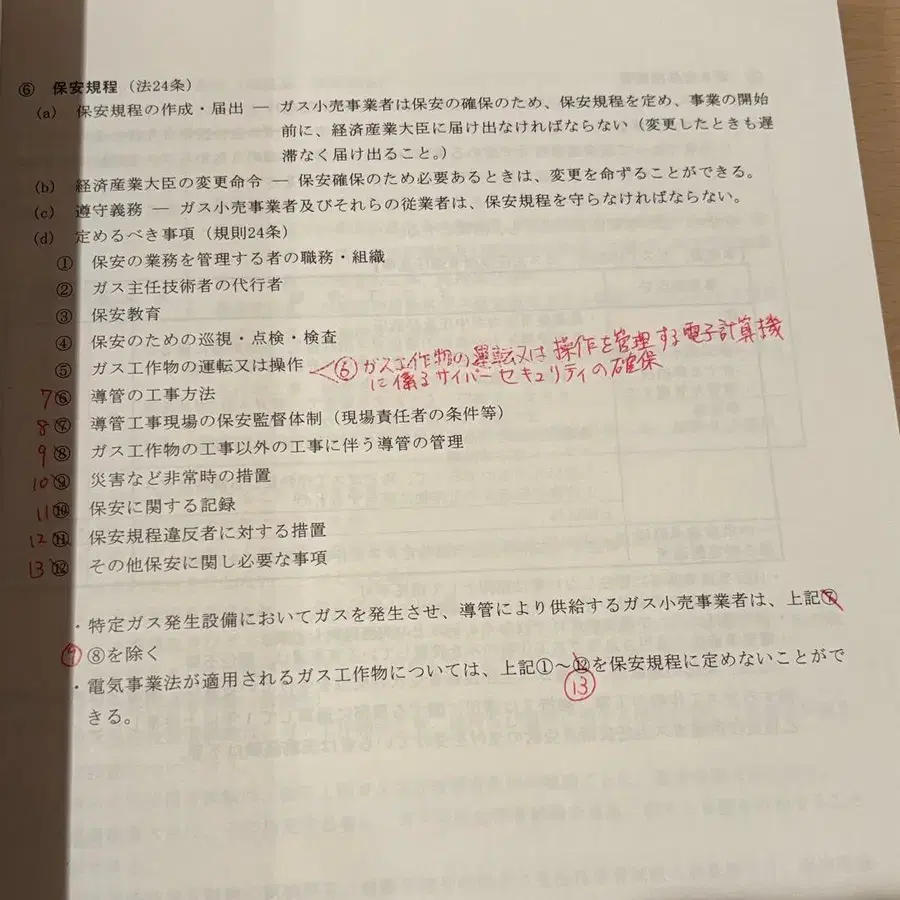 ⑥ 保安規程（法24条）
(a) 保安規程の作成・届出 ― ガス小売事業者は保安の確保のため、保安規程を定め、事業の開始
前に、経済産業大臣に届け出なければならない（変更したときも遅
滞なく届け出ること。）
(b) 経済産業大臣の変更命令 ― 保安確保のため必要あるときは、変更を命ずることができる。
(c) 遵守義務 ― ガス小売事業者及びそれらの従業者は、保安規程を守らなければならない。
(d) 定めるべき事項（規則24条）
① 保安の業務を管理する者の職務・組織
② ガス主任技術者の代行者
③ 保安教育
④ 保安のための巡視・点検・検査
⑤ ガス工作物の運転又は操作
⑥ ガス工作物の運転又は操作を管理する電子計算機
に係るサイバーセキュリティの確保
7 ⑥ 導管の工事方法
8 ⑦ 導管工事現場の保安監督体制（現場責任者の条件等）
9 ⑧ ガス工作物の工事以外の工事に伴う導管の管理
10 ⑨ 災害など非常時の措置
11 ⑩ 保安に関する記録
12 ⑪ 保安規程違反者に対する措置
13 ⑫ その他保安に関し必要な事項
・特定ガス発生設備においてガスを発生させ、導管により供給するガス小売事業者は、上記⑦
⑧を除く
・電気事業法が適用されるガス工作物については、上記①～⑫を保安規程に定めないことがで
13
きる。